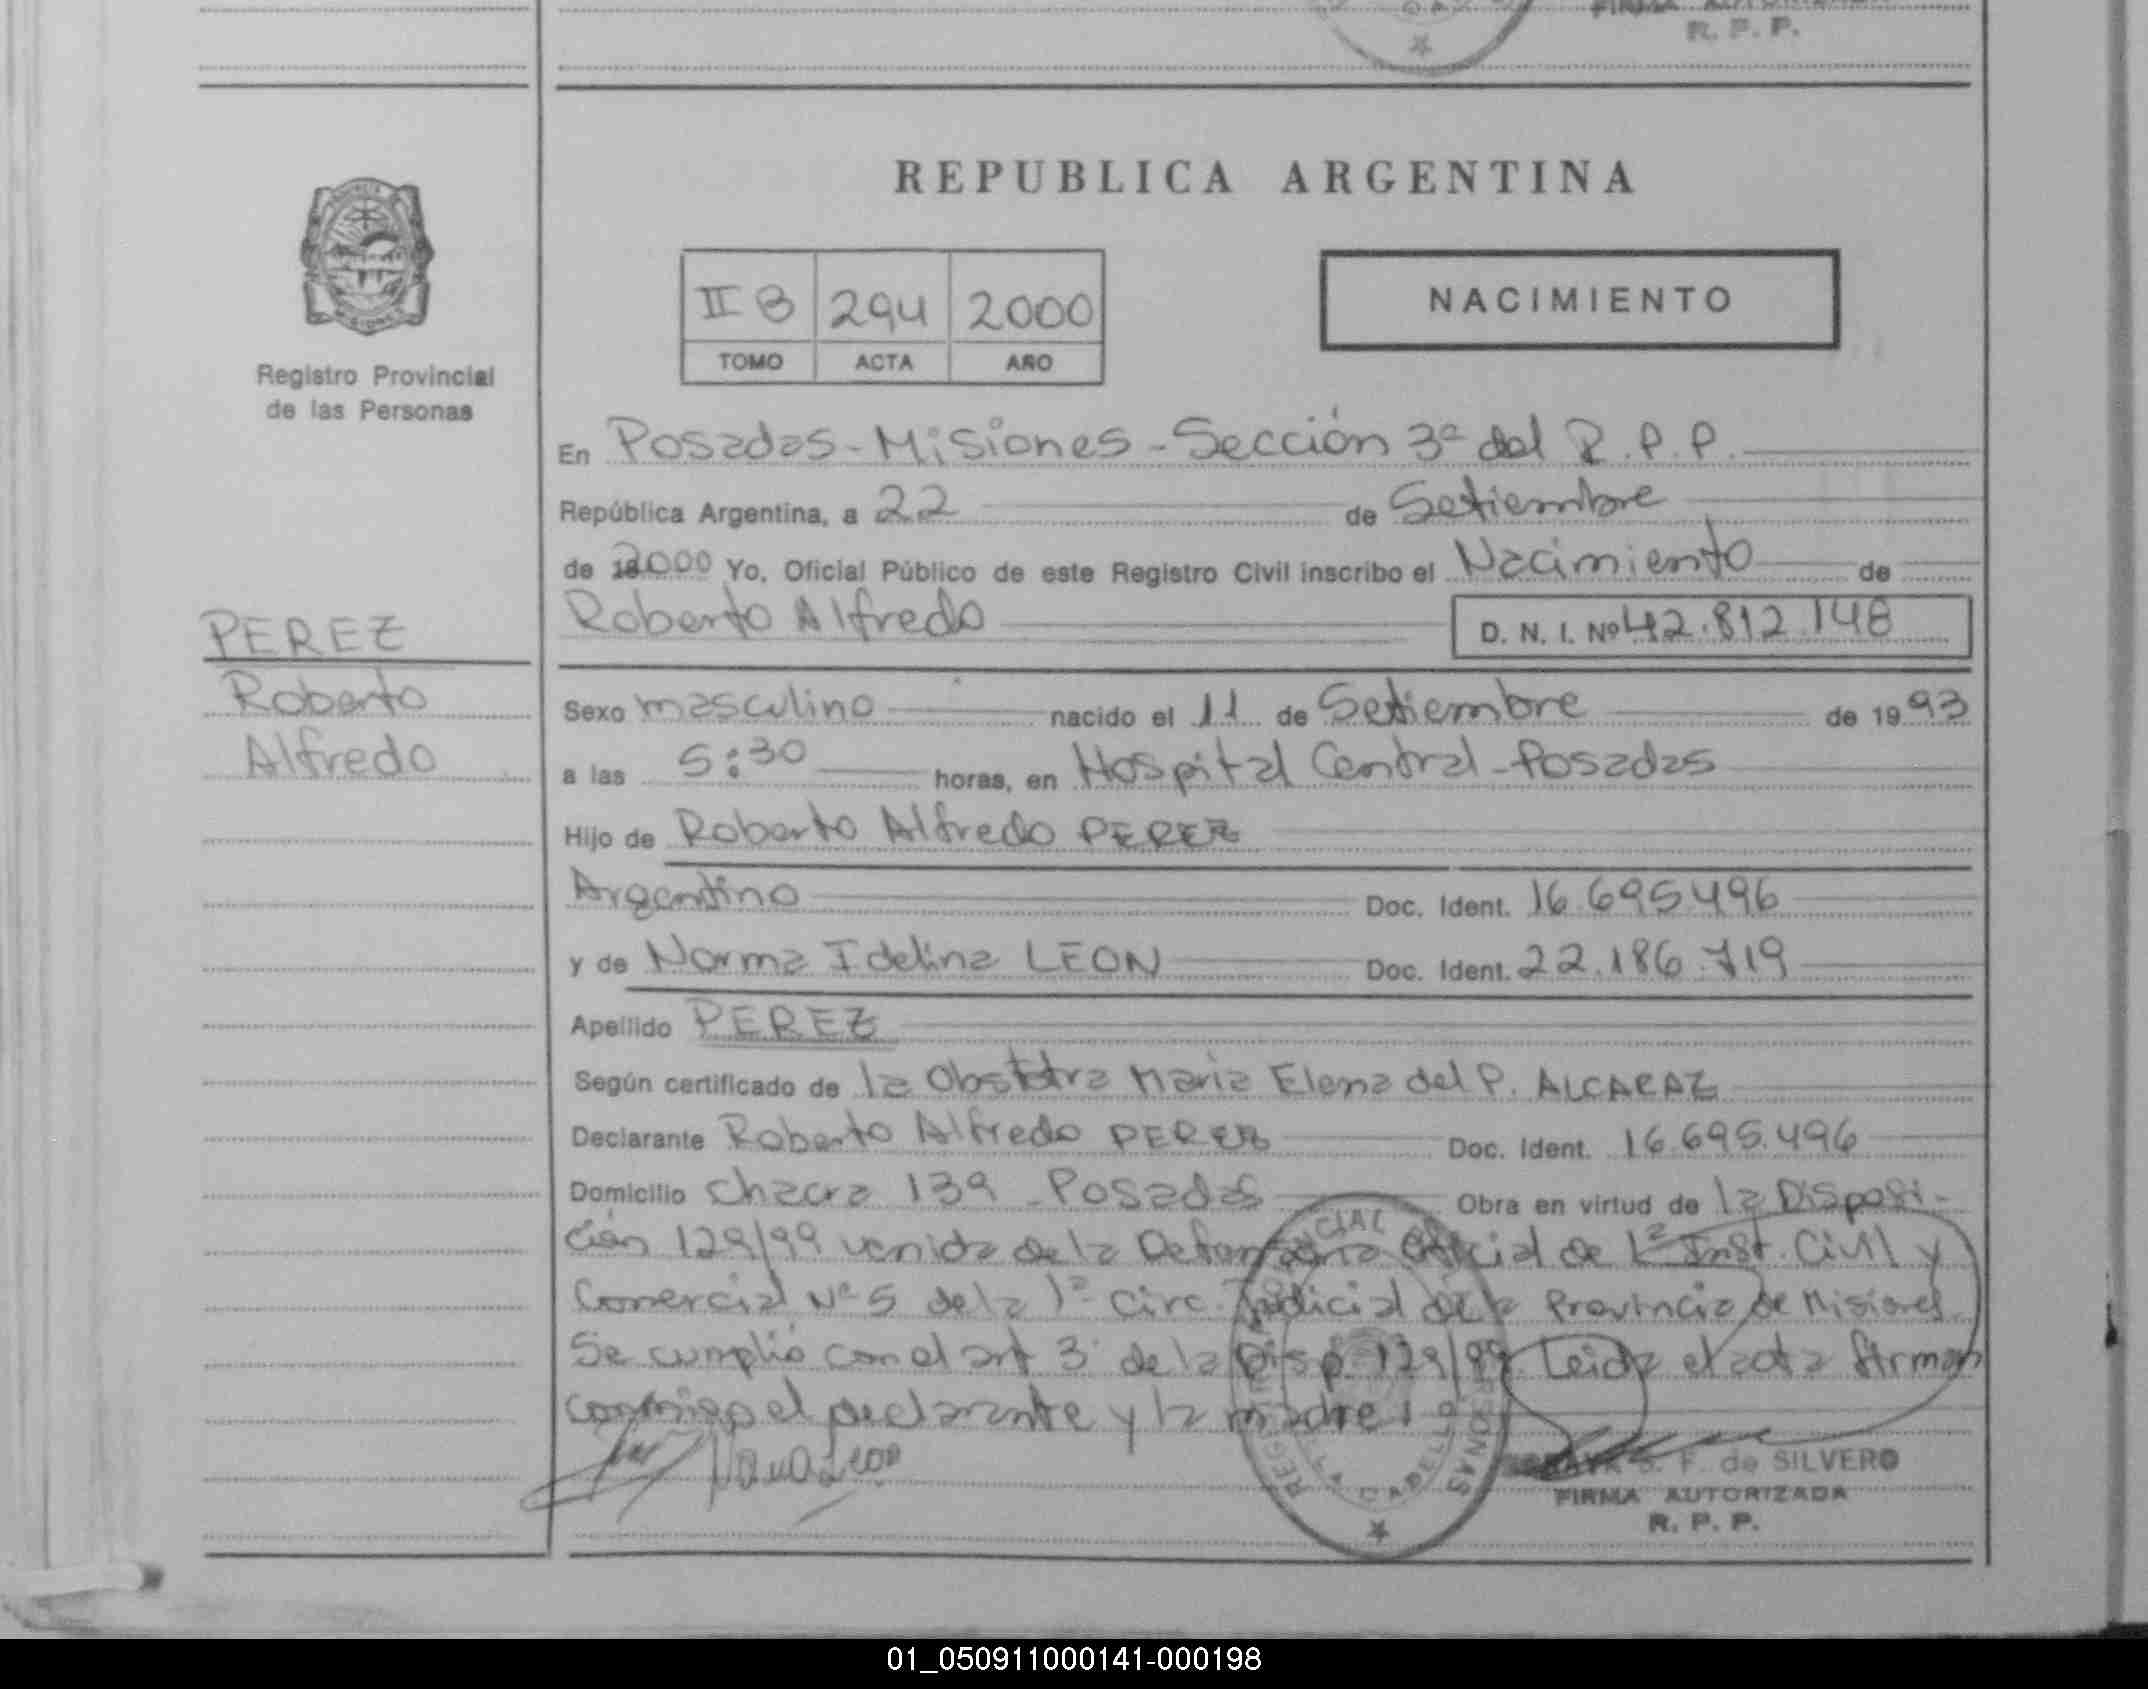 FIRMA AUTORIZADA
R. P. P.
REPUBLICA ARGENTINA
II B 294 2000
TOMO ACTA AÑO
NACIMIENTO
Registro Provincial
de las Personas
En Posadas - Misiones - Sección 3ª del R.P.P.
República Argentina, a 22 de Setiembre
de 2000 Yo, Oficial Público de este Registro Civil inscribo el Nacimiento de
Roberto Alfredo D. N. I. Nº 42.812.148
PEREZ
Roberto
Alfredo
Sexo masculino nacido el 11 de Setiembre de 1993
a las 5:30 horas, en Hospital Central - Posadas
Hijo de Roberto Alfredo PEREZ
Argentino Doc. Ident. 16.695.496
y de Norma Idelina LEON Doc. Ident. 22.186.719
Apellido PEREZ
Según certificado de la Obstetra Maria Elena del P. ALCARAZ
Declarante Roberto Alfredo PEREZ Doc. Ident. 16.695.496
Domicilio Chacra 139 - Posadas Obra en virtud de la Disposi-
ción 129/99 venida de la Defensoria Oficial de 1ª Inst. Civil y
Comercial Nº 5 de la 1ª Circ. Judicial de la Provincia de Misiones
Se cumplió con el art 3 de la Disp. 129/99. Leida el acta firman
conmigo el declarante y la madre.
S. F. de SILVERO
FIRMA AUTORIZADA
R. P. P.
01_050911000141-000198